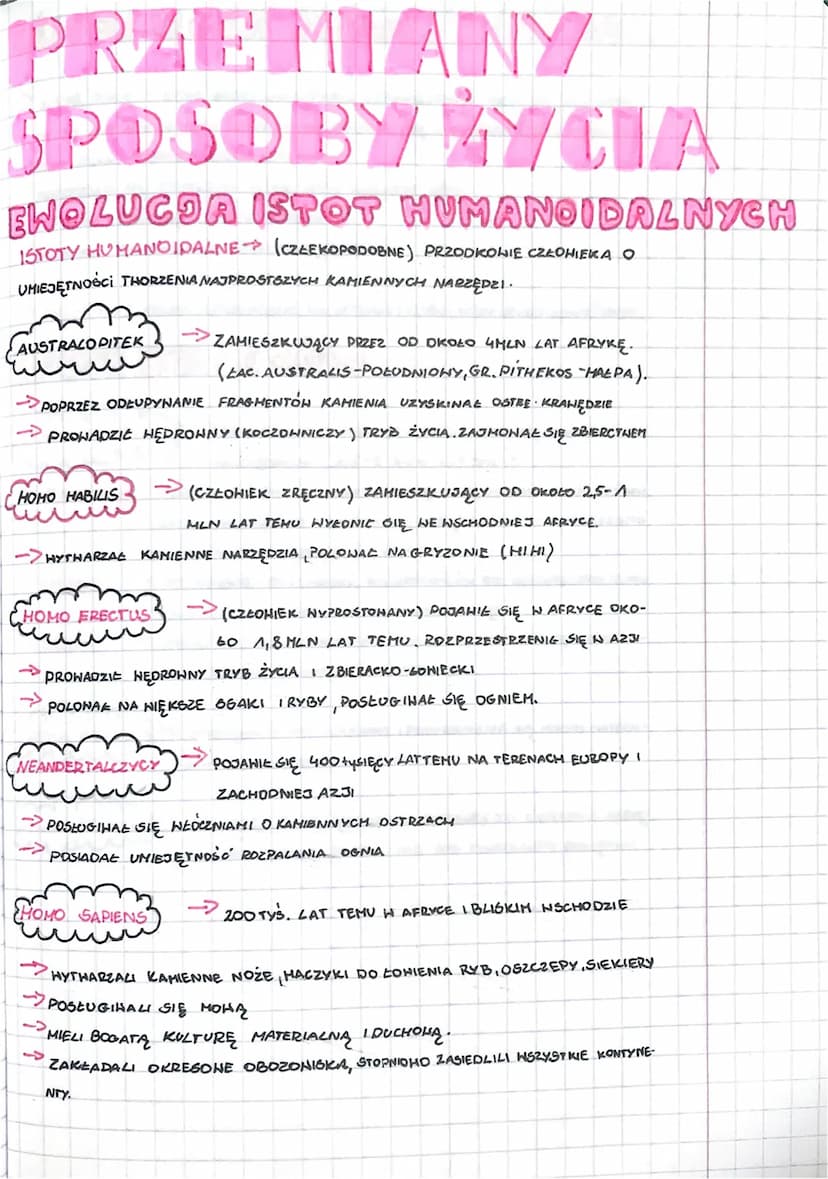 PRZEMIANY
SPOSOBY ŻYCIA
EWOLUCJA ISTOT HUMANOIDALNYCH
ISTOTY HUMANOIDALNE → (CZŁEKOPODOBNE) PRZODKOWIE CZŁOWIEKA O
UMIEJĘTNOŚCI TWORZENIA NAJPROSTSZYCH KAMIENNYCH NARZĘDZI.
AUSTRALOPITEK → ZAMIESZKUJĄCY PRZEZ OD OKOŁO 4MLN LAT AFRYKĘ.
(ŁAC. AUSTRALIS-POŁUDNIOWY, GR. PITHEKOS -MAŁPA).
→ POPRZEZ ODŁUPYWANIE FRAGMENTÓW KAMIENIA UZYSKIWAŁ OSTRE KRAWĘDZIE
→ PROWADZIŁ WĘDROWNY (KOCZOWNICZY) TRYB ŻYCIA. ZAJMOWAŁ SIĘ ZBIERCTWEM
HOMO HABILIS → (CZŁOWIEK ZRĘCZNY) ZAMIESZKUJĄCY OD OKOŁO 2,5-1
MLN LAT TEMU WYŁONIŁ SIĘ WE WSCHODNIEJ AFRYCE.
→ WYTWARZAŁ KAMIENNE NARZĘDZIA, POLOWAŁ NA GRYZONIE (HIHI)
HOMO ERECTUS → (CZŁOWIEK WYPROSTOWANY) POJAWIŁ SIĘ W AFRYCE OKO-
ŁO 1,8 MLN LAT TEMU. ROZPRZESTRZENIŁ SIĘ W AZJI
→ PROWADZIŁ WĘDROWNY TRYB ŻYCIA I ZBIERACKO-ŁOWIECKI
→ POLOWAŁ NA WIĘKSZE SSAKI I RYBY, POSŁUGIWAŁ SIĘ OGNIEM.
NEANDERTALCZYCY → POJAWIŁ SIĘ 400 tysięcy LAT TEMU NA TERENACH EUROPY I
ZACHODNIEJ AZJI
→ POSŁUGIWAŁ SIĘ WŁÓCZNIAMI O KAMIENNYCH OSTRZACH
→ POSIADAŁ UMIEJĘTNOŚĆ ROZPALANIA OGNIA
HOMO SAPIENS → 200 TYŚ. LAT TEMU W AFRYCE I BLISKIM WSCHODZIE
→ WYTWARZALI KAMIENNE NOŻE, HACZYKI DO ŁOWIENIA RYB, OSZCZEPY, SIEKIERY
→ POSŁUGIWALI SIĘ MOWĄ
→ MIELI BOGATĄ KULTURĘ MATERIALNĄ I DUCHOWĄ.
→ ZAKŁADALI OKRESOWE OBOZOWISKA, STOPNIOWO ZASIEDLILI WSZYSTKIE KONTYNE-
NTY.